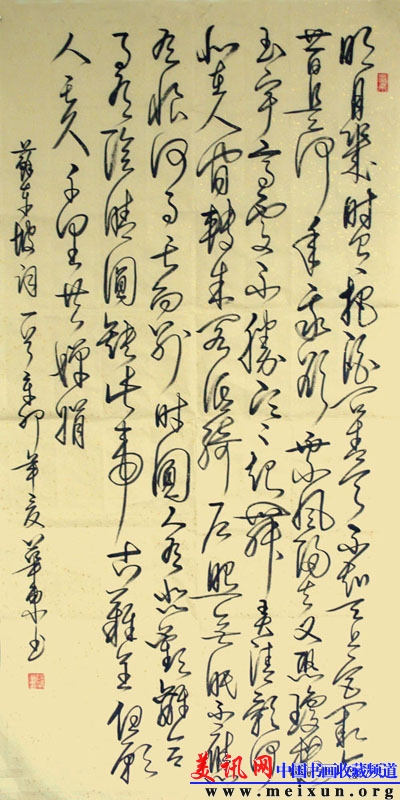 明月幾時有把酒问青天不知天上宫阙今
昔是何年我欲乘风归去又恐瓊楼
玉宇高处不勝寒起舞弄清影何
似在人间轉朱阁低绮户照無眠不應
有恨何事长向别时圓人有悲歡離合
月有陰晴圓缺此事古難全但願
人长久千里共嬋娟
蘇东坡词一首辛卯年夏華东书
美讯网 中国书画收藏频道
www.meixun.org